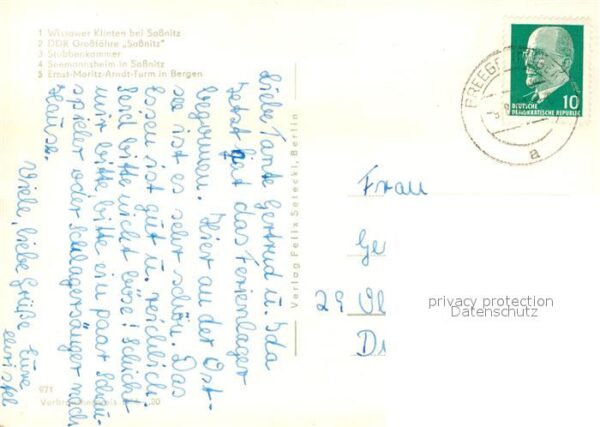 1 Wissower Klinten bei Saßnitz
2 DDR Großfähre „Saßnitz"
3 Stubbenkammer
4 Seemannsheim in Saßnitz
5 Ernst-Moritz-Arndt-Turm in Bergen
Liebe Tante Gertrud u. Ida
Jetzt hat das Ferienlager
begonnen. Hier an der Ost-
see ist es sehr schön. Das
Essen ist gut u. reichlich.
Seid bitte nicht böse! Schickt
mir bitte bitte ein paar Schau-
spieler oder Schlagersänger nach
Hause.
Viele, liebe Grüße Eure
Verlag Felix Setecki, Berlin
971
DEUTSCHE
DEMOKRATISCHE REPUBLIK
10
a
Frau
Ge
29
D
privacy protection
Datenschutz